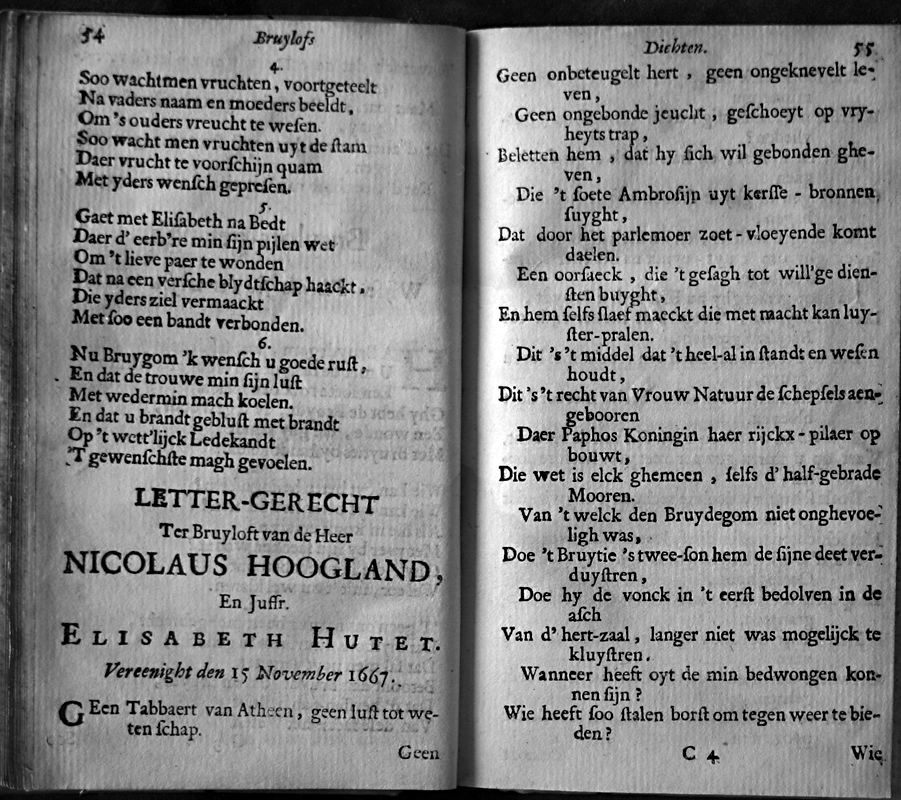 54
Bruylofs
4.
Soo wachtmen vruchten, voortgeteelt
Na vaders naam en moeders beeldt,
Om 's ouders vreucht te weſen.
Soo wacht men vruchten uyt de ſtam
Daer vrucht te voorſchijn quam
Met yders wenſch gepreſen.
5.
Gaet met Eliſabeth na Bedt
Daer d' eerb're min ſijn pijlen wet
Om 't lieve paer te wonden
Dat na een verſche blydtſchap haackt,
Die yders ziel vermaackt
Met ſoo een bandt verbonden.
6.
Nu Bruygom 'k wenſch u goede ruſt,
En dat de trouwe min ſijn luſt
Met wedermin mach koelen.
En dat u brandt gebluſt met brandt
Op 't wett'lijck Ledekandt
'T gewenſchſte magh gevoelen.
LETTER-GERECHT
Ter Bruyloft van de Heer
NICOLAUS HOOGLAND,
En Juffr.
ELISABETH HUTET.
Vereenight den 15 November 1667.
GEen Tabbaert van Atheen, geen luſt tot we-
ten ſchap.
Geen
Dichten.
55
Geen onbeteugelt hert, geen ongeknevelt le-
ven,
Geen ongebonde jeucht, geſchoeyt op vry-
heyts trap,
Beletten hem, dat hy ſich wil gebonden ghe-
ven,
Die 't ſoete Ambroſijn uyt kerſſe-bronnen
ſuyght,
Dat door het parlemoer zoet-vloeyende komt
daelen.
Een oorſaeck, die 't geſagh tot will'ge dien-
ſten buyght,
En hem ſelfs ſlaef maeckt die met macht kan luy-
ſter-pralen.
Dit 's 't middel dat 't heel-al in ſtandt en weſen
houdt,
Dit 's 't recht van Vrouw Natuur de ſchepſels aen-
gebooren
Daer Paphos Koningin haer rijckx-pilaer op
bouwt,
Die wet is elck ghemeen, ſelfs d' half-gebrade
Mooren.
Van 't welck den Bruydegom niet onghevoe-
ligh was,
Doe 't Bruytie 's twee-ſon hem de ſijne deet ver-
duyſtren,
Doe hy de vonck in 't eerſt bedolven in de
aſch
Van d' hert-zaal, langer niet was mogelijck te
kluyſtren.
Wanneer heeft oyt de min bedwongen kon-
nen ſijn?
Wie heeft ſoo ſtalen borſt om tegen weer te bie-
den?
C 4
Wie